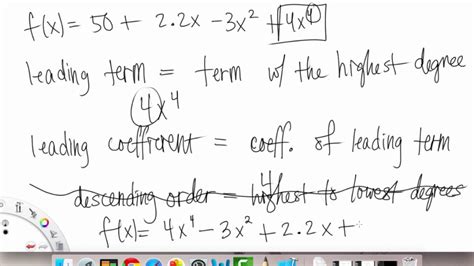 f(x) = 50 + 2.2x - 3x² + 4x⁴
leading term = term w/ the highest degree
4x⁴
leading coefficient = coeff. of leading term
4
descending order = highest to lowest degrees
f(x) = 4x⁴ - 3x² + 2.2x +